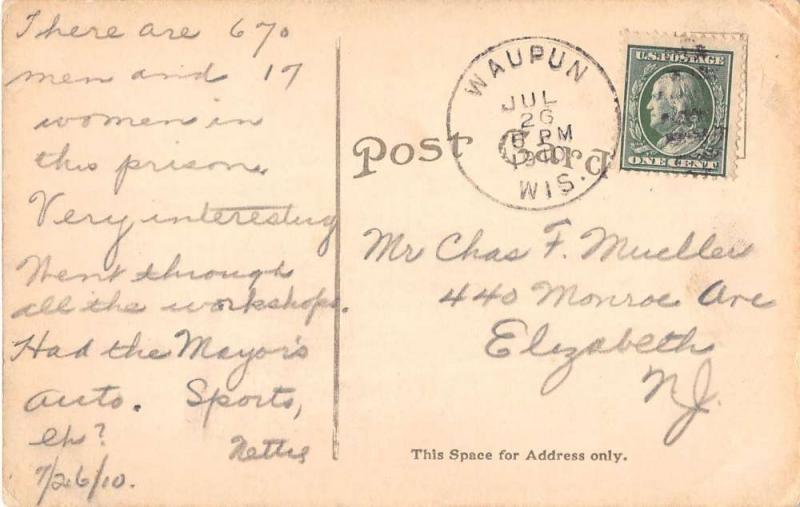 There are 670
men and 17
women in
this prison.
Very interesting
Went through
all the workshops.
Had the Mayor's
auto. Sports,
eh?
Nettie
7/26/10.
Post Card
WAUPUN
JUL
26
5 PM
1910
WIS.
U.S. POSTAGE
ONE CENT
Mr Chas F. Mueller
440 Monroe Ave
Elizabeth
N.J.
This Space for Address only.